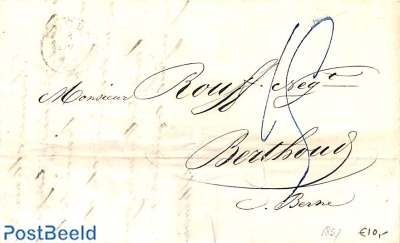 15
Monsieur Rouff. Negt
Berthoud
C. Berne
1851 €10,-
PostBeeld